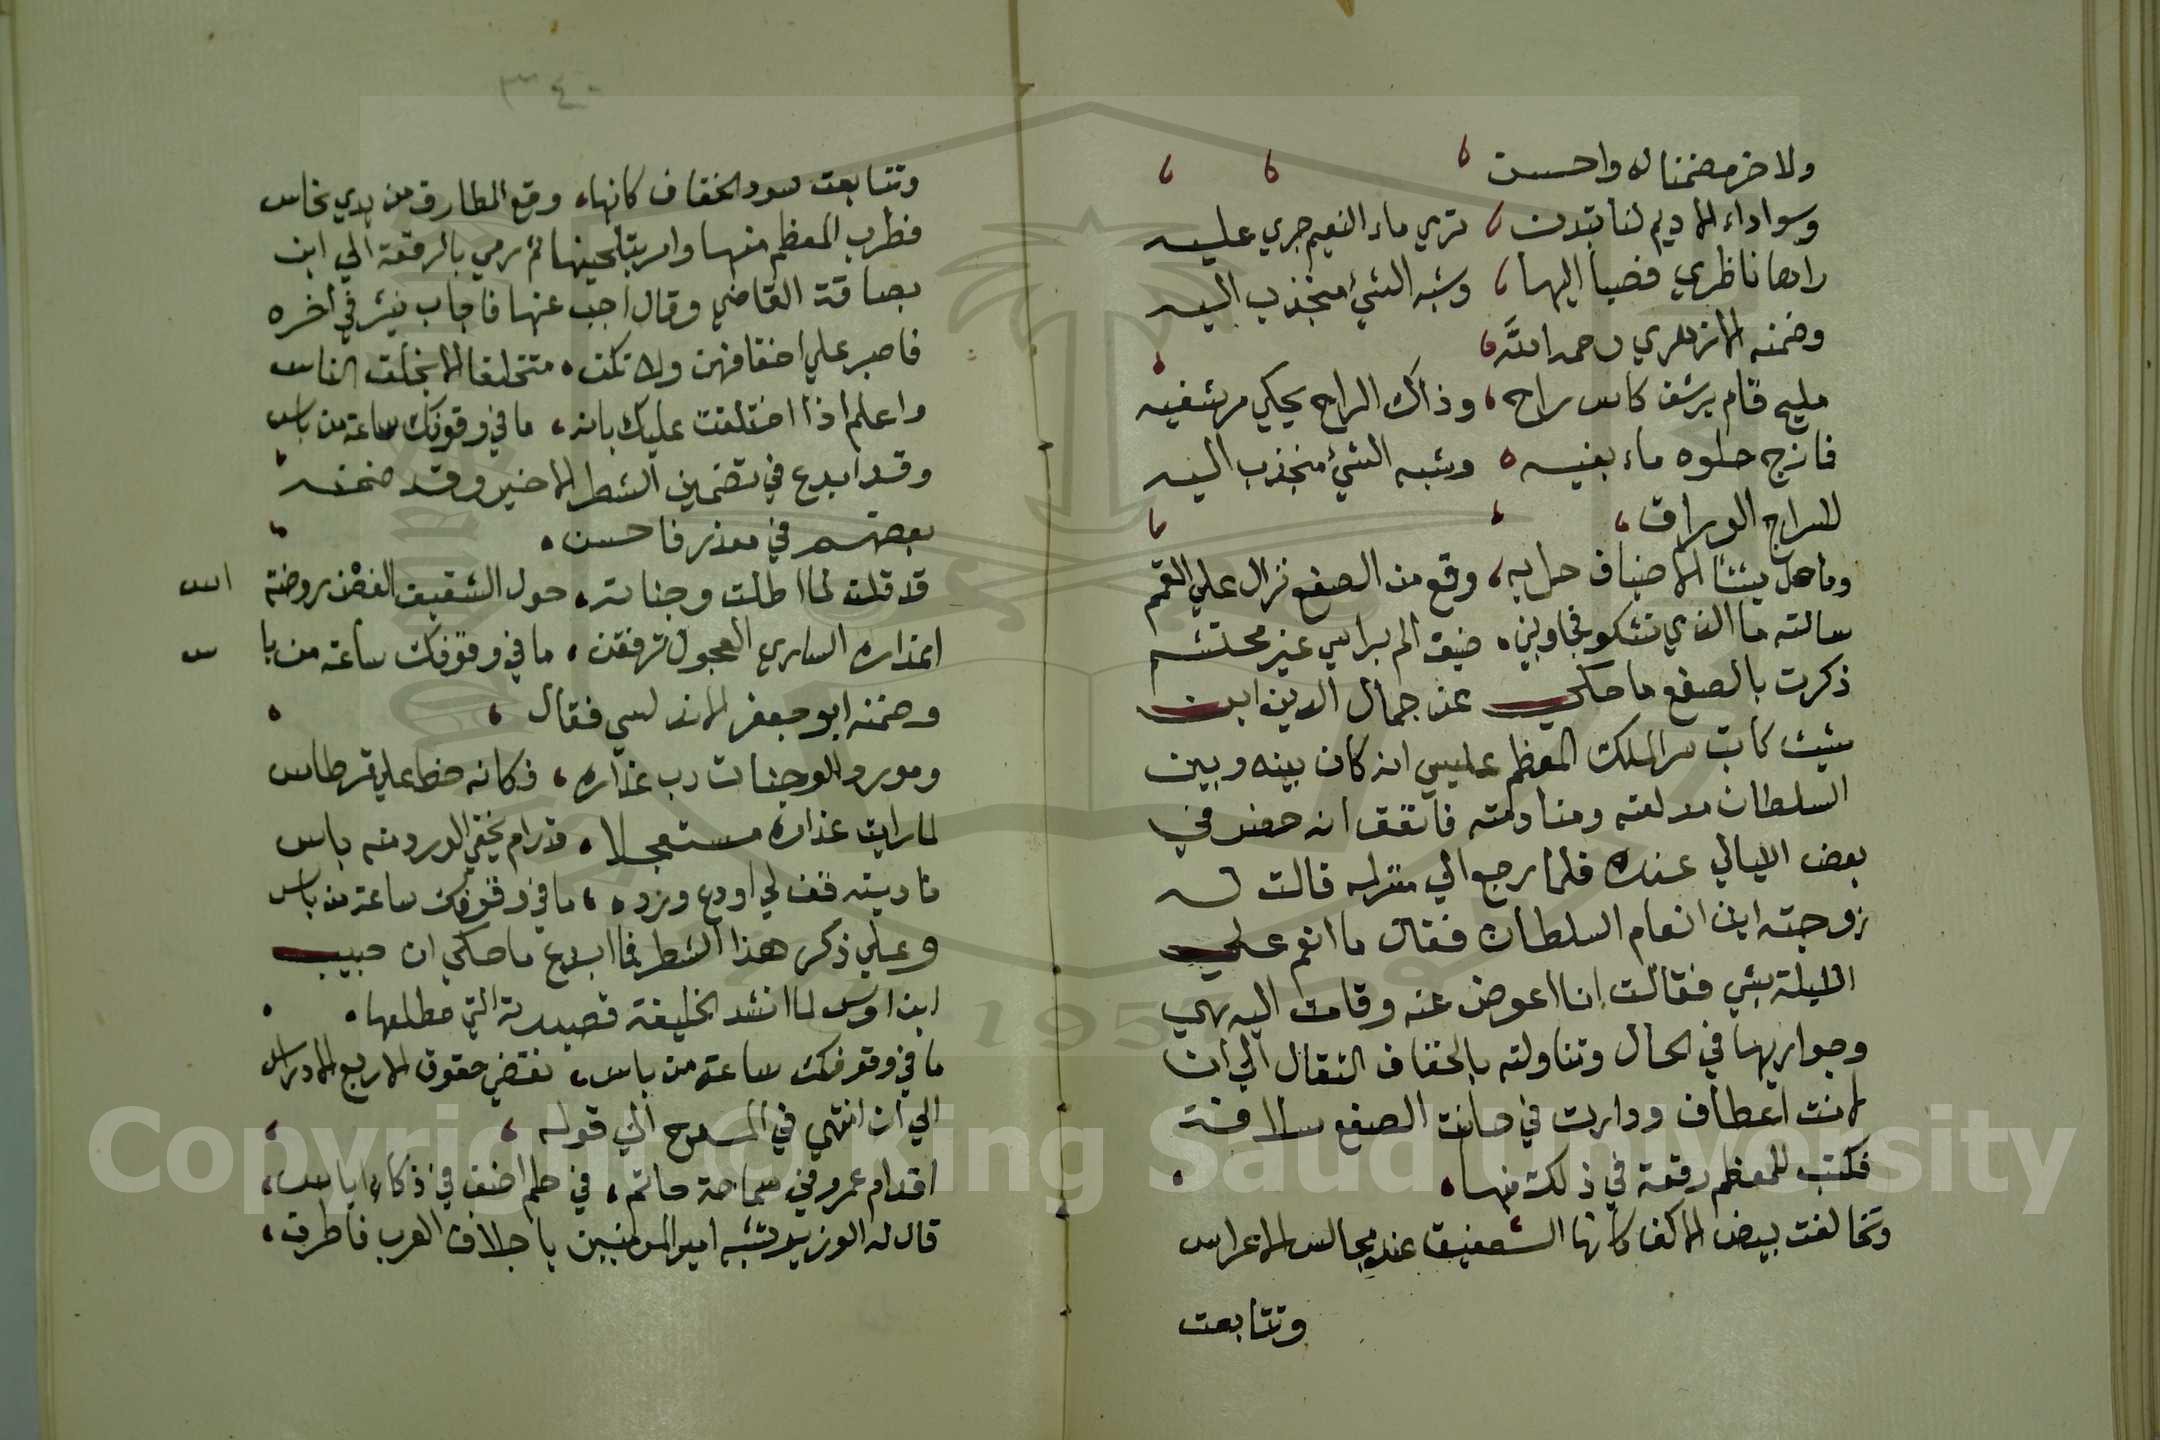 ولاخر مضمنا له واحسن
وسواداء الاديم لنا تبدت ، تري ماء النعيم جري عليه
راها ناظري فصبا اليها ، وشبه الشئ منجذب اليه
وضمنه الازهري رحمه الله ،
مليح قام يرشف كاس راح ، وذاك الراح يحكي مرشفيه
فازج حلوه ماء بفيه ، وشبه الشئ منجذب اليه
للسراج الوراق ،
وما الاضياف حل به ، وقع من الصفع نزال علي القمم
سالته ما الذي تشكو فجاوبني ، ضيف الم براسي غير محتشم
ذكرت بالصفع ما حكي عن جمال الدين ابن
شيث كاتب سر الملك المعظم عليسي انه كان بينه وبين
السلطان مدلعته ومنادمته فاتفق انه حضر في
بعض الليالي عنده فلما رجع الي منزله قالت له
زوجته اين انعام السلطان فقال ما انعم علي
الليلة بشي فقالت انا اعوض عنه وقامت اليه هي
وجواريها في الحال وتناولته بالخفاف الثقال الي ان
لانت اعطاف ودارت في حانت الصفع سلافة
فكتب للمعظم رقعة في ذلك منها ،
وتخالفت بيض الاكف كانها التصفيق عند مجالس الاعراس
وتتابعت
٣٤٠
وتتابعت سود الخفاف كانها ، وقع المطارق من يدي نحاس
فطرب المعظم منها وامر بتلحينها ثم رمي بالرقعة الي ابن
بصاقة القاضي وقال اجب عنها فاجاب بنثر في اخره
فاصبر علي اخفافهن ولا تكن ، متخلقا الا بخلق الناس
واعلم اذا اختلفت عليك بانه ، ما في وقوفك ساعة من باس
وقد ابدع في تضمين الشطر الاخير وقد ضمنه
بعضهم في معذر فاحسن ،
قد قلت لما اطلت وجناته ، حول الشقيق الغض روضة اس
اعذاره الساري العجول ترفقن ، ما في وقوفك ساعة من باس
وضمنه ابو جعفر الاندلسي فقال ،
ومورد الوجنات دب عذاره ، فكانه خط علي قرطاس
لما رايت عذاره مستعجلا ، قد رام يخفي الورد منه باس
ناديته قف لي اودع ورده ، ما في وقوفك ساعة من باس
وعلي ذكر هذا الشطر فما ابدع ما حكي ان حبيب
ابن اوس لما انشد الخليفة قصيدته التي مطلعها ،
ما في وقوفك ساعة من باس ، نقضي حقوق الاربع الادراس
الي ان انتهي في المدح الي قوله ،
اقدام عمرو في سماحة حاتم ، في حلم احنف في ذكاء اياس ،
قال له الوزير تشبه امير المومنين باجلاف العرب فاطرق ،